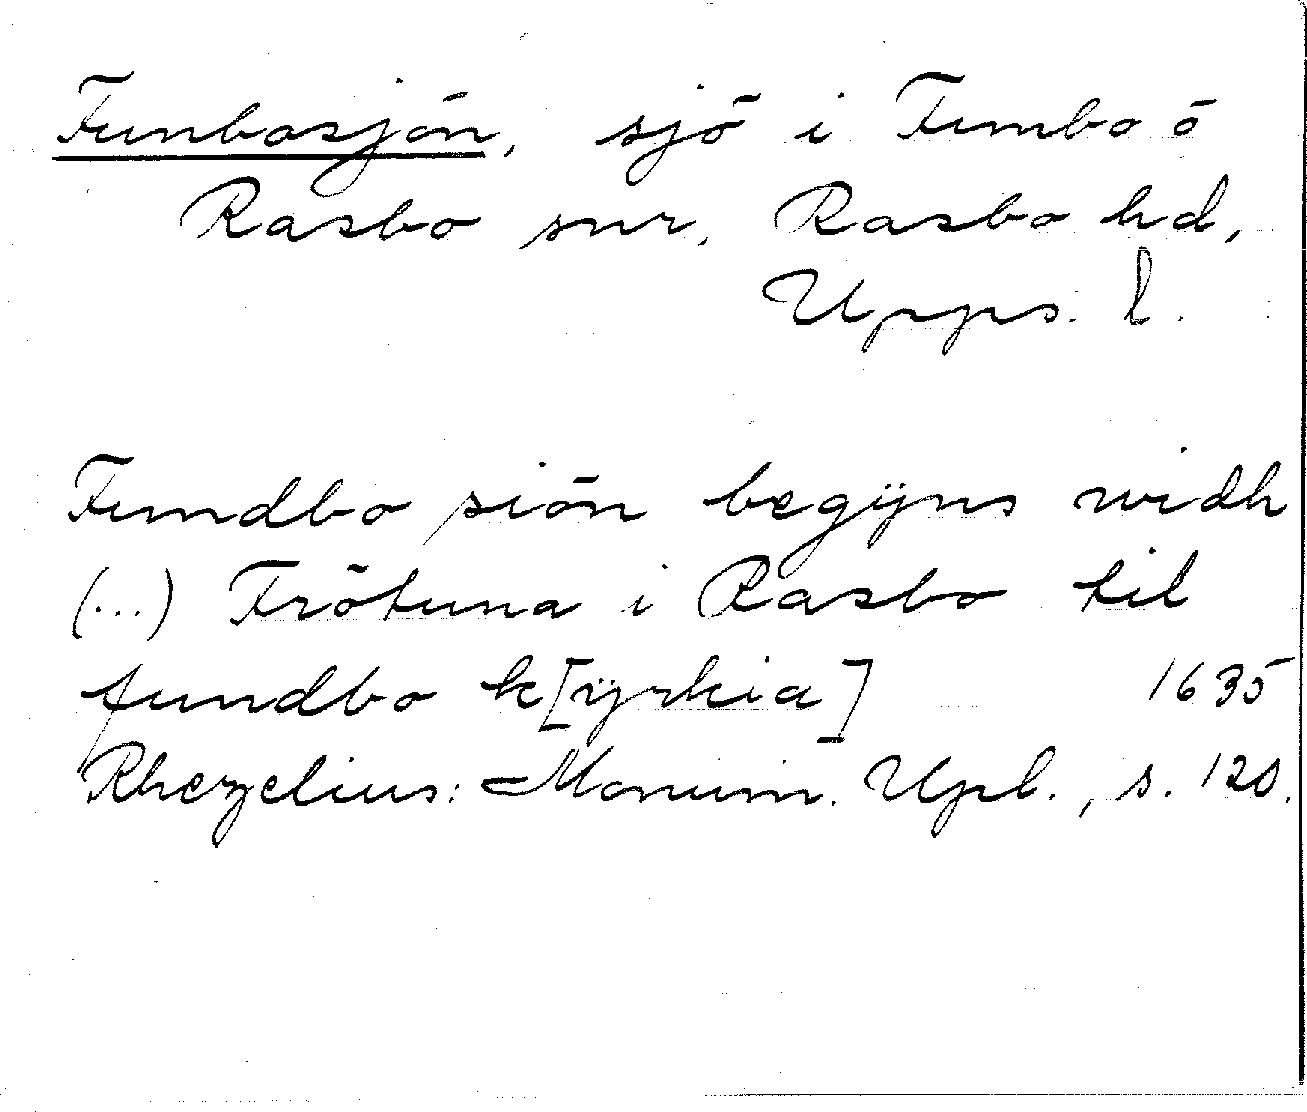 Funbosjön, sjö i Funbo o
Rasbo snr, Rasbo hd,
Upps. l.
Fundbo siön begÿns widh
(...) Frötuna i Rasbo til
fundbo k[ÿrkia] 1635
Rhezelius: Monum. Upl., s. 120.